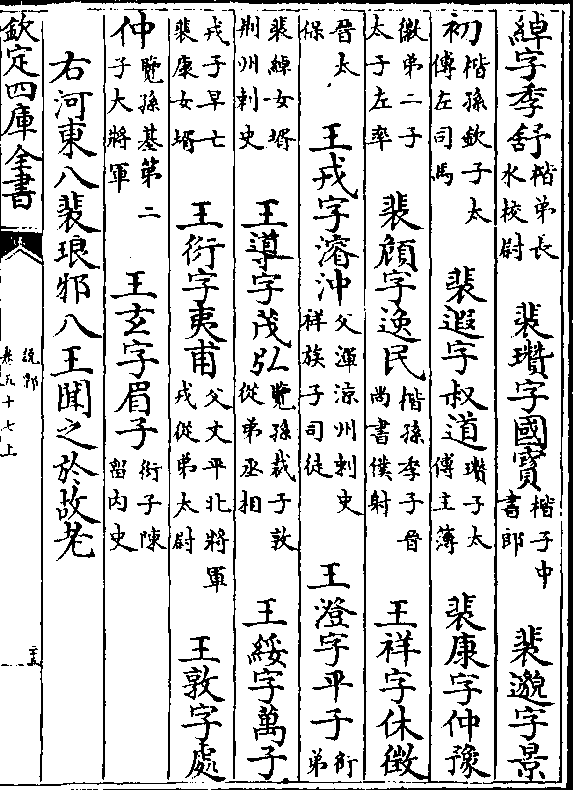 綽字季舒 楷弟長水校尉 裴瓚字國寳 楷子中書郎 裴邈字景
初 楷孫欽子太傅左司馬 裴遐字叔道 瓚子太傅主簿 裴康字仲豫
徽弟二子太子左率 裴頠字逸民 楷孫季子晉尚書僕射 王祥字休徴
晉太保 王戎字濬沖 父渾涼州刺史祥族子司徒 王澄字平子 衍弟
裴綽女壻荆州刺史 王導字茂弘 覽孫裁子敦從弟丞相 王綏字萬子
戎子早亡裴康女壻 王衍字夷甫 父丈平北將軍戎從弟太尉 王敦字處
仲 覽孫基第二子大將軍 王玄字眉子 衍子陳留内史
右河東八裴琅邪八王聞之於故老
欽定四庫全書
說郛
卷九十七上